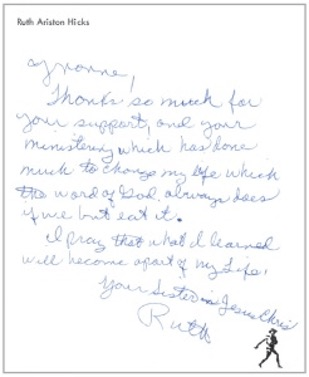 Ruth Ariston Hicks
Yvonne,
Thanks so much for
your support, and your
ministering which has done
much to change my life which
the word of God always does
if we but eat it.
I pray that what I learned
will become apart of my life.
Your Sister in Jesus Chris
Ruth